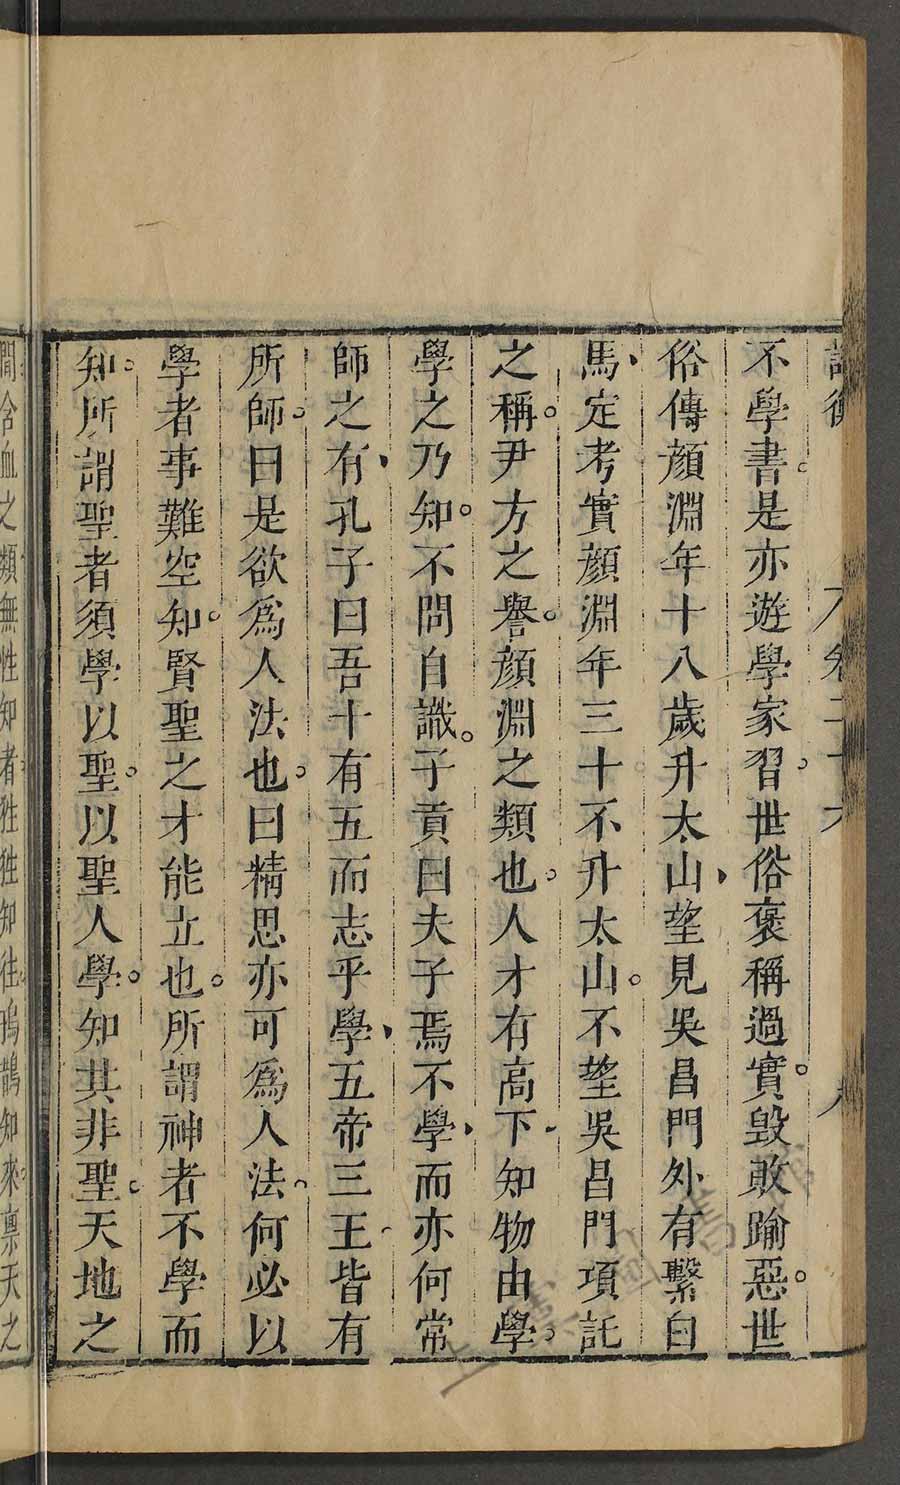 論衡 卷二十六 八
不學書。是亦遊學家習。世俗褒稱過實。毀敗踰惡。世
俗傳顏淵年十八歲升太山、望見吳昌門外有繫白
馬、定考實顏淵年三十不升太山。不望吳昌門項託
之稱。尹方之譽。顏淵之類也。人才有高下、知物由學。
學之乃知。不問自識。子貢曰夫子焉不學、而亦何常
師之有、孔子曰吾十有五而志乎學、五帝三王、皆有
所師。曰是欲爲人法也。曰精思亦可爲人法。何必以
學者事難空知。賢聖之才能立也。所謂神者不學而
知。所謂聖者須學以聖。以聖人學。知其非聖。天地之
間含血之類無性知者狌狌知往鳱鵲知來稟天之